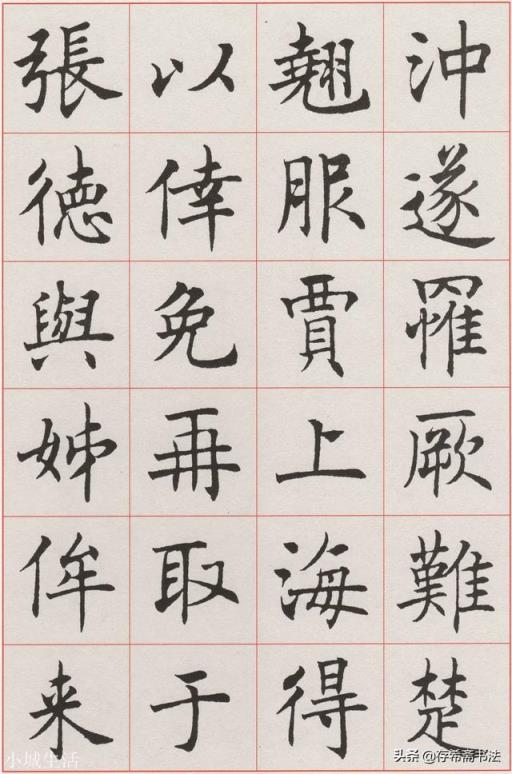 沖遂罹厥難楚
翹服賈上海得
以倖免再取于
張德與姊侔来
头条@存希斋书法
小城生活